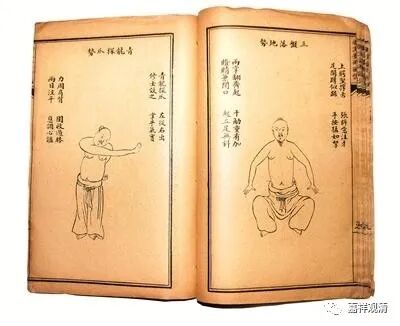 三盤落地勢
上腭堅撐舌 張眸意注牙
足開蹲似踞 手按猛如拏
兩掌翻齊起 千觔重有加
瞪睛兼閉口 起立足無斜
青龍探爪勢
青龍探爪 左從右出
修士效之 掌平氣實
力周肩背 圍收過膝
兩目注平 息調心謐
嘉祥观清